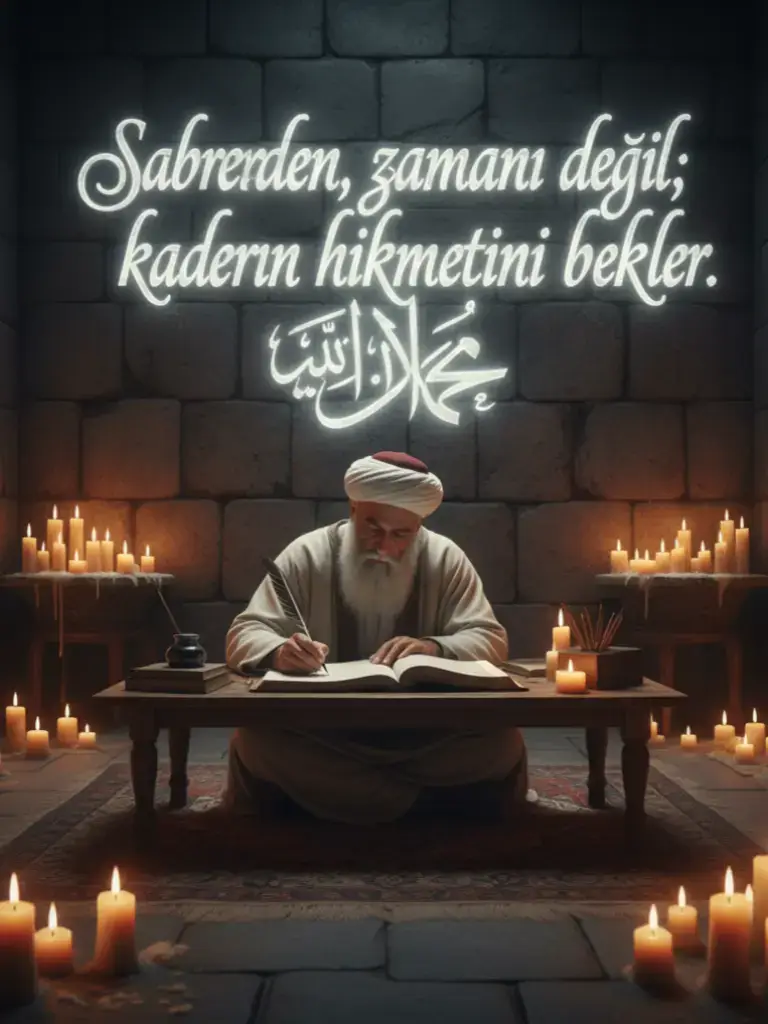 Sabrerden, zamanı değil;
kaderın hikmetini bekler.